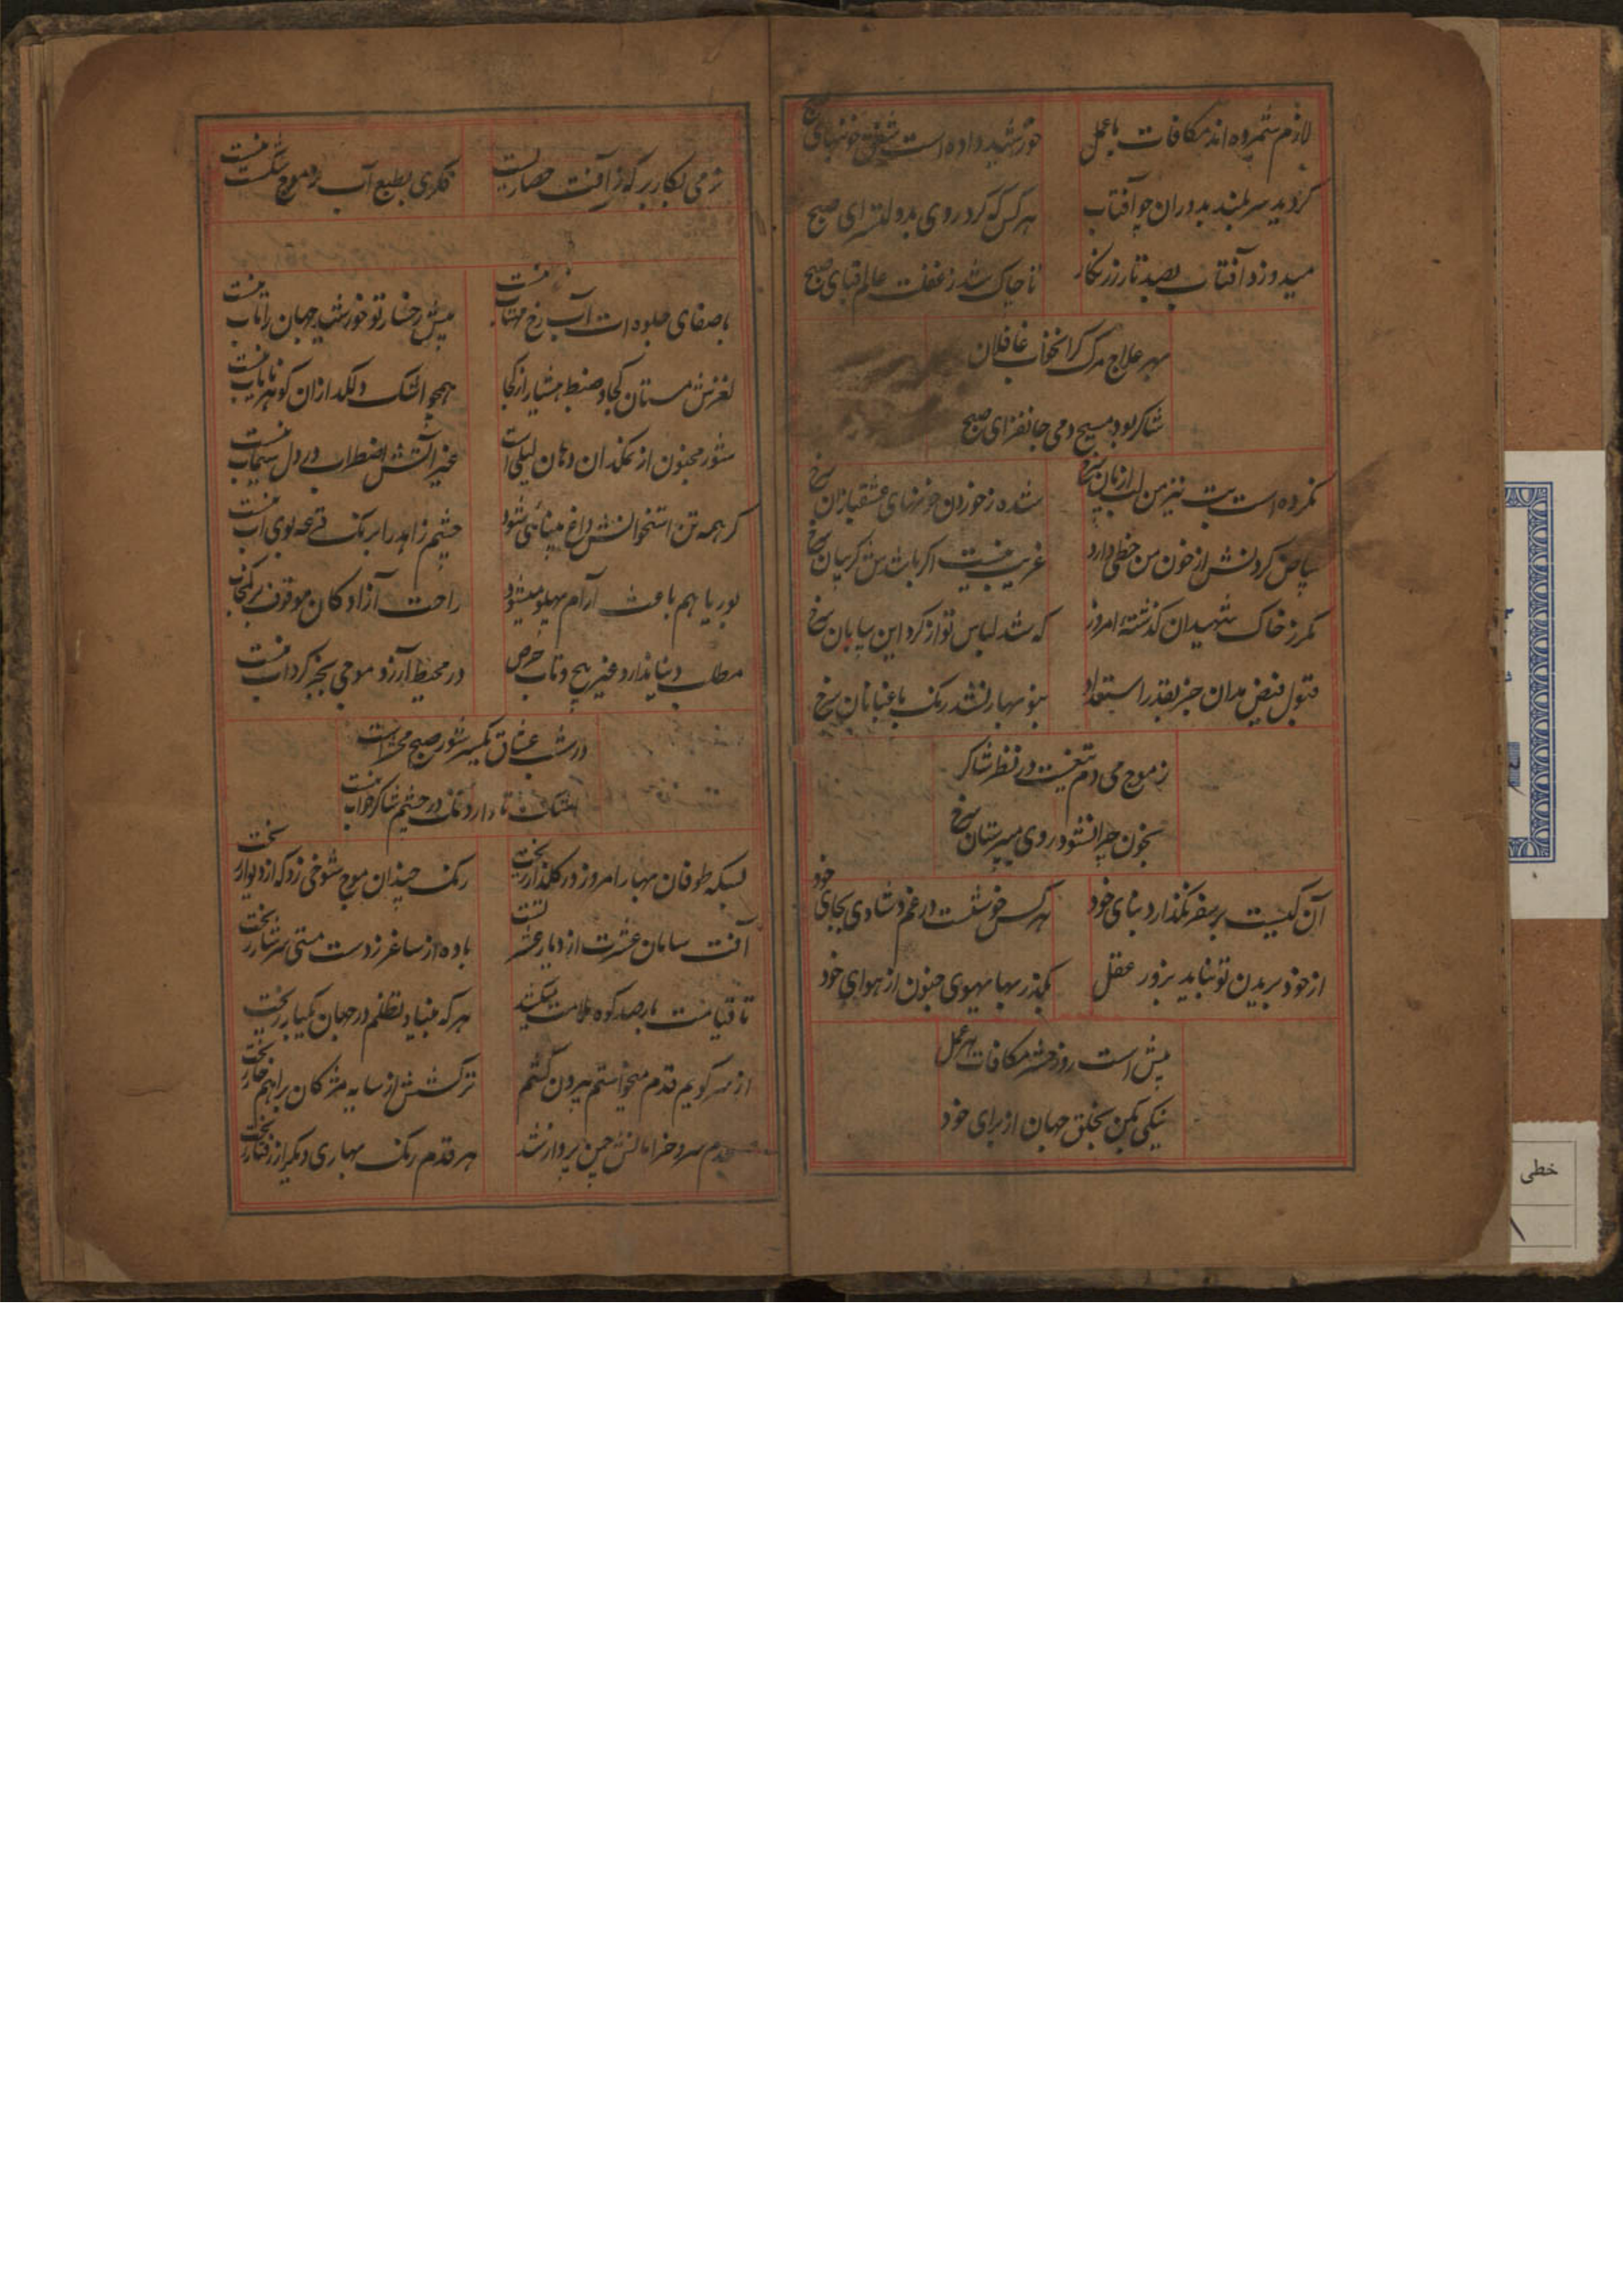 لازم شمرده اند مکافات با عمل
خورشید داده است شفق خونبهای صبح
کردید سر بلند بدوران چو آفتاب
هر کس که کرد روی بدولتسرای صبح
میدوزد آفتاب بصد تار زرنکار
تا چاک شد ز غفلت عالم قبای صبح
بهر علاج مرک کرانخواب غافلان
شاکر بود مسیح دمی جانفزای صبح
نکرده است بت نیز من لب از پان سرخ
شده ز خوردن خونهای عشقبازان سرخ
بیاض کردنش از خون من خطی دارد
غریب نیست اکر باشدش کریبان سرخ
مکر ز خاک شهیدان کذشتهٔ امروز
که شد لباس تو از کرد این بیابان سرخ
قبول فیض مدان جز بقدر استعداد
بنوبهار نشد رنک باغبانان سرخ
ز موج می دم تیغست در نظر شاکر
بخون چرا نشود روی میپرستان سرخ
آن کیست بر سفر نکذارد بنای خود
هر کس خوشست در غم و شادی بجای خود
از خود بریدن تو نیاید بزور عقل
بکذر بهایهوی جنون از هوای خود
پیش است روز حشر مکافات هر عمل
نیکی بکن بخلق جهان از برای خود
نرمی بکار بر که ز آفت حصاریست
فکری بطبع آب ز موج شکست نیست
با صفای جلوه ات آب رخ مهتاب نیست
پیش رخسار تو خورشید جهان را تاب نیست
لغزش مستان کجا و ضبط هشیار از کجا
همچو اشک دلکداز ان کوهر نایاب نیست
شور مجنون از نمکدان دهان لیلی است
غیر آتش اضطرابی در دل سیماب نیست
کر همه تن استخوانش داغ مینائی شود
چشم زاهد را برنک قرعه بوی آب نیست
بوریا هم باعث آرام پهلو میشود
راحت آزادکان موقوف بر کمخاب نیست
مطلب دنیا ندارد غیر پیچ و تاب حرص
در محیط آرزو موجی بجز کرداب نیست
در شب عشاق یکسر شور صبح محشر است
اشک تا دارد نمک در چشم شاکر خواب نیست
بسکه طوفان بهار امروز در کلذار ریخت
رنک چندان موج شوخی زد که از دیوار ریخت
آفت سامان عشرت از دیار عشر تست
باده از ساغر ز دست مستی سرشار ریخت
تا قیامت بار صد کوه ملامت میکشد
هر که بنیاد تظلم در جهان یکبار ریخت
از سر کویم قدم میخواستم بیرون کشم
ترکشش از سایه مژکان براهم خار ریخت
سرو خرامانش چمن پرواز شد
هر قدم رنک بهاری دیکر از رفتار ریخت
خطی